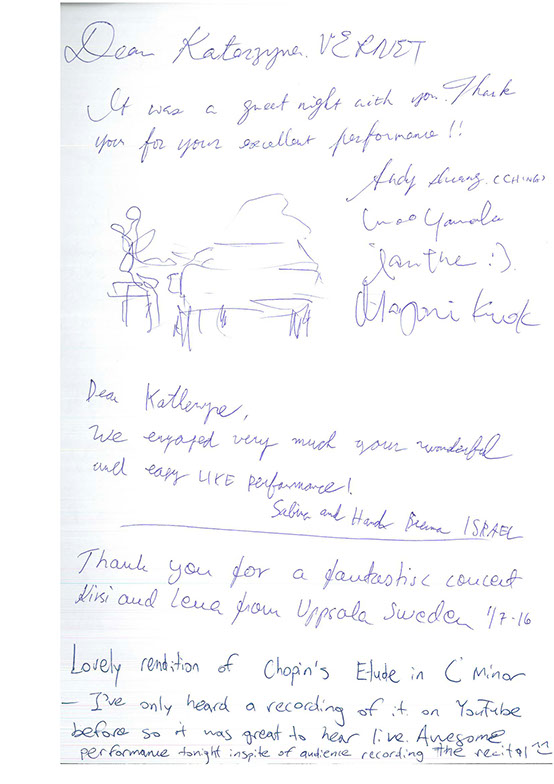 Dear Katarzyna VERNET
It was a great night with you. Thank
you for your excellent performance!!
Andy (CHING)
Yamada
Ianthe :).
Kwok
Dear
We enjoyed very much your wonderful
and easy LIKE performance!
Sabina and ISRAEL
Thank you for a fantastisc concert
Kirsi and Lena from Uppsala Sweden 1/7-16
Lovely rendition of Chopin's Etude in C Minor
- I've only heard a recording of it on YouTube
before so it was great to hear live. Awesome
performance tonight inspite of audience recording the recital